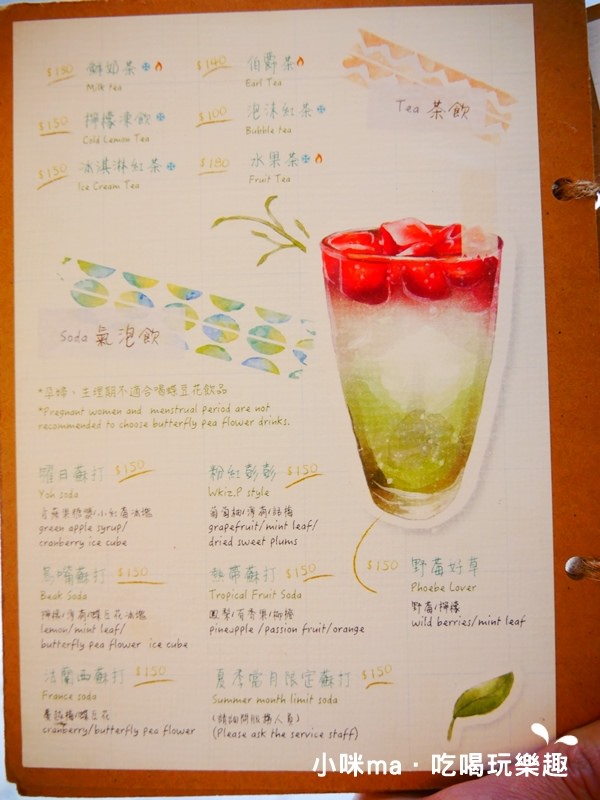 $130 鮮奶茶
Milk tea
$140 伯爵茶
Earl Tea
Tea 茶飲
$150 檸檬凍飲
Cold Lemon Tea
$100 泡沫紅茶
Bubble tea
$150 冰淇淋紅茶
Ice Cream Tea
$180 水果茶
Fruit Tea
Soda 氣泡飲
*孕婦、生理期不適合喝蝶豆花飲品
*Pregnant women and menstrual period are not
recommended to choose butterfly pea flower drinks.
曜日蘇打 $150
Yoh soda
青蘋果糖漿/小紅莓冰塊
green apple syrup/
cranberry ice cube
粉紅彭彭 $150
Wkiz.P style
葡萄柚/薄荷/話梅
grapefruit/mint leaf/
dried sweet plums
鳥嘴蘇打 $150
Beak Soda
檸檬/薄荷/蝶豆花冰塊
lemon/mint leaf/
butterfly pea flower ice cube
熱帶蘇打 $150
Tropical Fruit Soda
鳳梨/百香果/柳橙
pineapple/passion fruit/orange
$150 野莓好草
Phoebe Lover
野莓/檸檬
wild berries/mint leaf
法蘭西蘇打 $150
France soda
蔓越莓/蝶豆花
cranberry/butterfly pea flower
夏季當月限定蘇打 $150
Summer month limit soda
(請詢問服務人員)
(Please ask the service staff)
小咪ma·吃喝玩樂趣